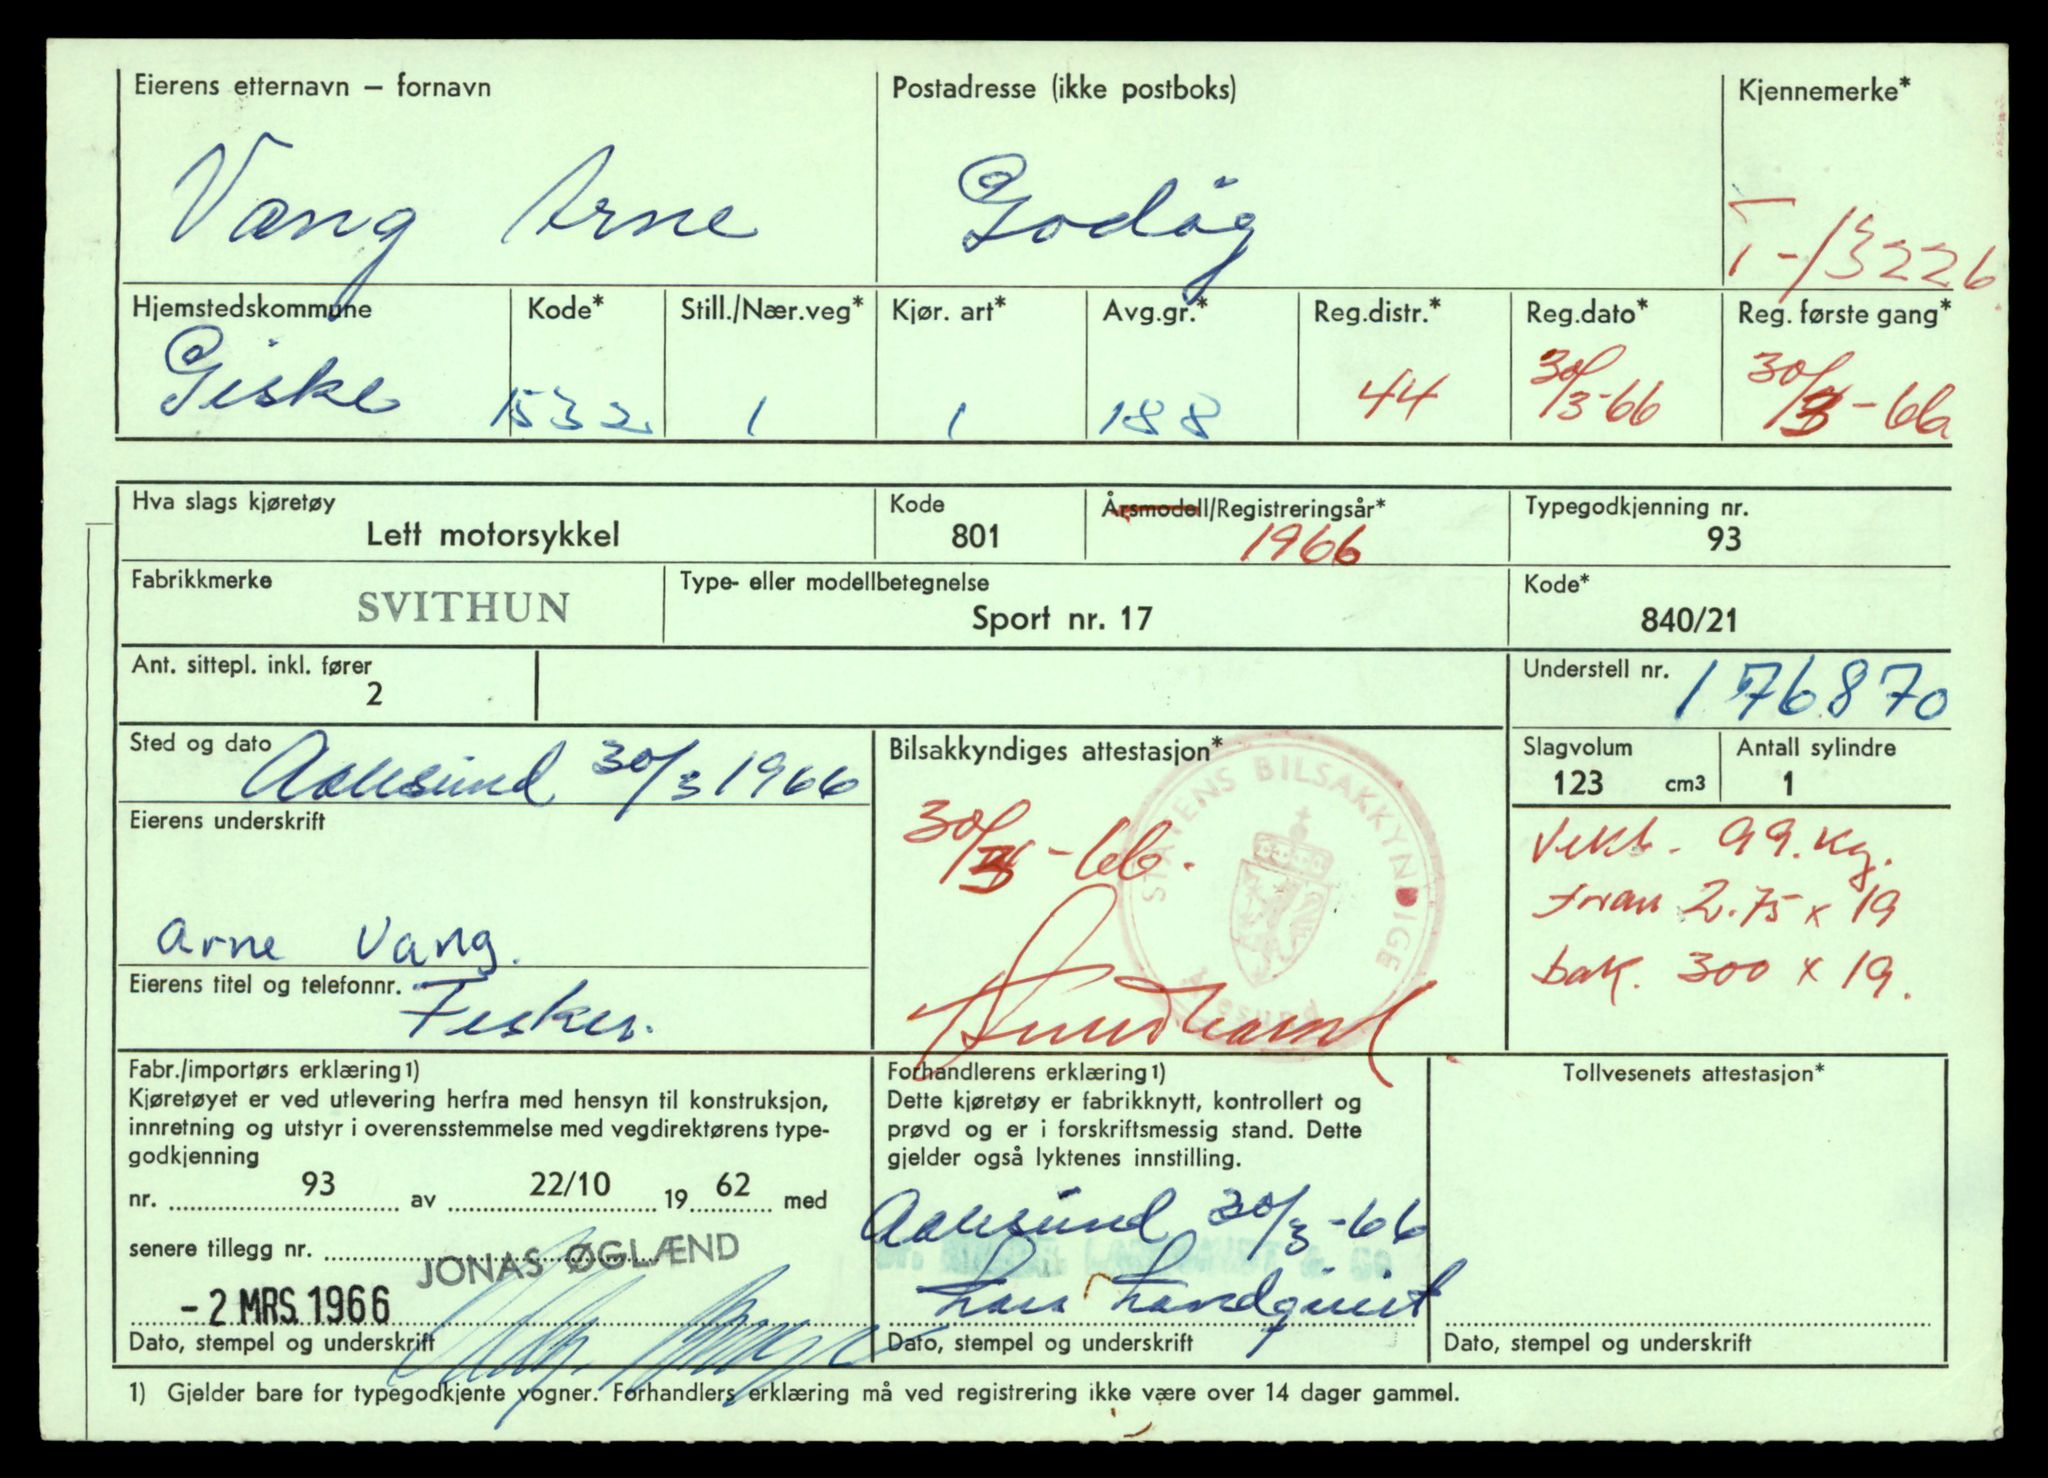 Eierens etternavn – fornavn
Postadresse (ikke postboks)
Kjennemerke*
Vang Arne
Godøy
T-13226
Hjemstedskommune
Kode*
Still./Nær.veg*
Kjør. art*
Avg.gr.*
Reg.distr.*
Reg.dato*
Reg. første gang*
Giske
1532
1
1
188
44
30/3-66
30/3-66
Hva slags kjøretøy
Kode
Årsmodell/Registreringsår*
Typegodkjenning nr.
Lett motorsykkel
801
1966
93
Fabrikkmerke
SVITHUN
Type- eller modellbetegnelse
Sport nr. 17
Kode*
840/21
Ant. sittepl. inkl. fører
2
Understell nr.
176870
Sted og dato
Aalesund 30/3 1966
Bilsakkyndiges attestasjon*
Slagvolum
123 cm3
Antall sylindre
1
STATENS BILSAKKYNDIGE
Ålesund
30/3-66.
Eierens underskrift
Arne Vang.
Vekt. 99. kg.
fran 2.75 x 19
bak. 300 x 19.
Eierens titel og telefonnr.
Fisker.
Fabr./importørs erklæring1)
Kjøretøyet er ved utlevering herfra med hensyn til konstruksjon,
innretning og utstyr i overensstemmelse med vegdirektørens type-
godkjenning
nr. 93 av 22/10 19 62 med
senere tillegg nr.
JONAS ØGLÆND
- 2 MRS. 1966
Dato, stempel og underskrift
Forhandlerens erklæring1)
Dette kjøretøy er fabrikknytt, kontrollert og
prøvd og er i forskriftsmessig stand. Dette
gjelder også lyktenes innstilling.
Aalesund 30/3-66
Lars Landquist
Dato, stempel og underskrift
Tollvesenets attestasjon*
Dato, stempel og underskrift
1) Gjelder bare for typegodkjente vogner. Forhandlers erklæring må ved registrering ikke være over 14 dager gammel.